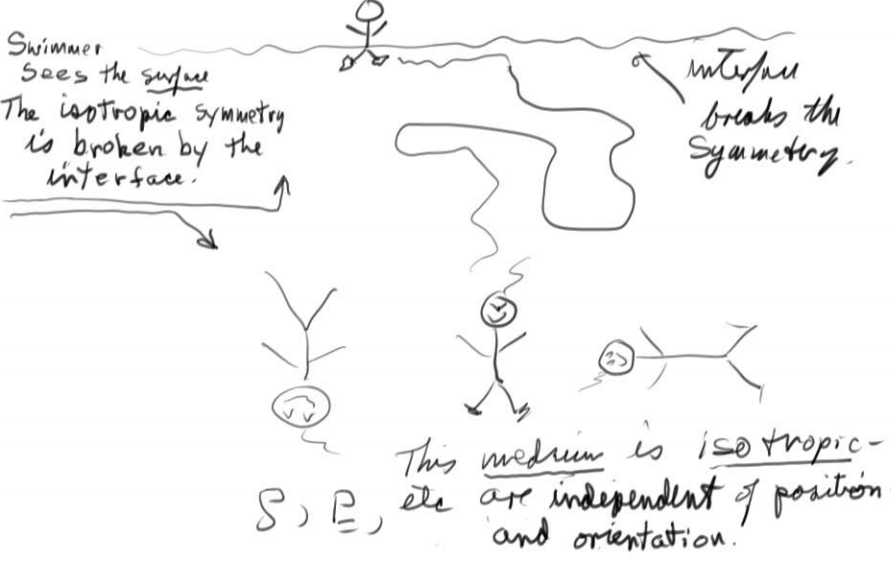 Swimmer
sees the surface
The isotropic symmetry
is broken by the
interface.
interface
breaks the
Symmetry.
This medium is isotropic-
etc are independent of position
and orientation.